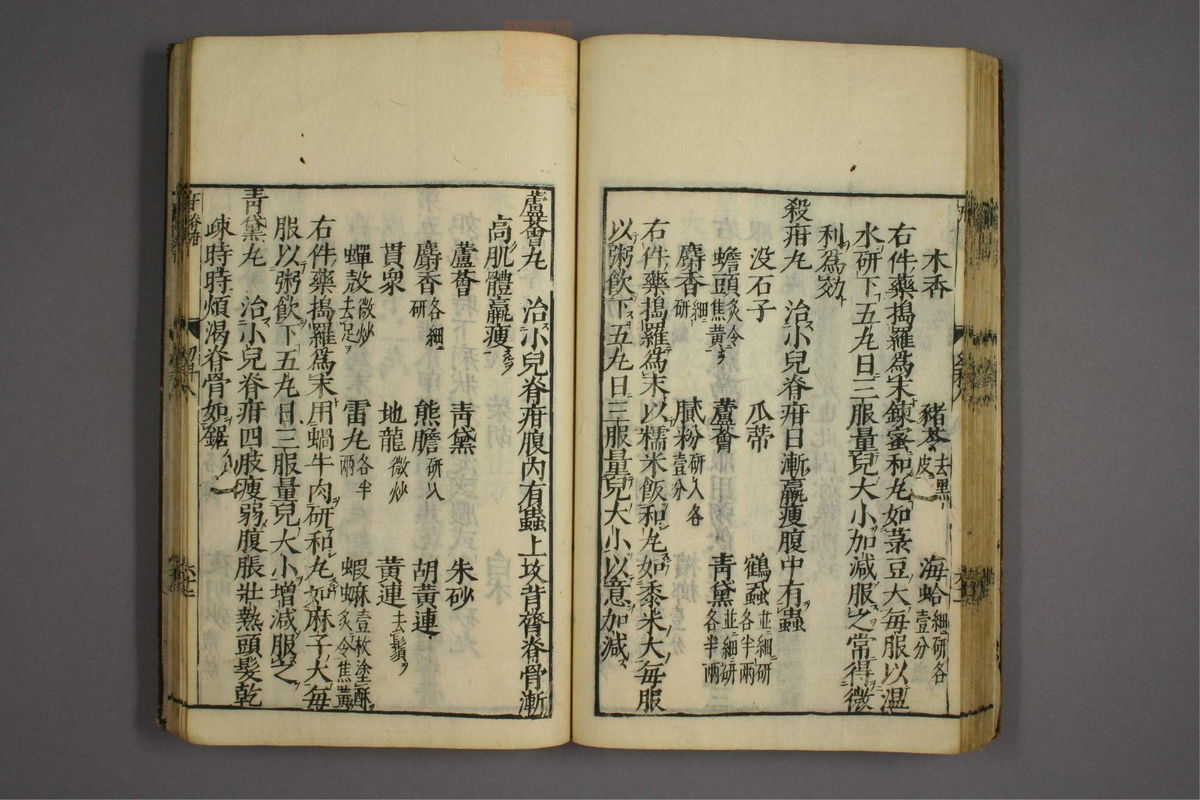 木香 豬苓去黑皮 海蛤細研各壹分
右件藥搗羅爲末鍊蜜和丸如菉豆大每服以溫
水研下五丸日三服量兒大小加減服之常得微
利爲効
殺疳丸 治小兒脊疳日漸羸瘦腹中有蟲
没石子 瓜蒂 鶴蝨並細研各半兩
蟾頭炙令焦黃 蘆薈 青黛並細研各半兩
麝香細研 膩粉研入各壹分
右件藥搗羅爲末以糯米飯和丸如黍米大每服
以粥飲下五丸日三服量兒大小以意加減
蘆薈丸 治小兒脊疳腹內有蟲上攻背膂脊骨漸
高肌體羸瘦
蘆薈 青黛 朱砂
麝香各細研 熊膽研入 胡黃連
貫衆 地龍微炒 黃連去鬚
蟬殼微炒去足 雷丸各半兩 蝦蟆壹枚塗酥炙令焦黃
右件藥搗羅爲末用蝸牛肉研和丸如麻子大每
服以粥飲下五丸日三服量兒大小增減服之
青黛丸 治小兒脊疳四肢瘦弱腹脹壯熱頭髮乾
疎時時煩渴脊骨如鋸